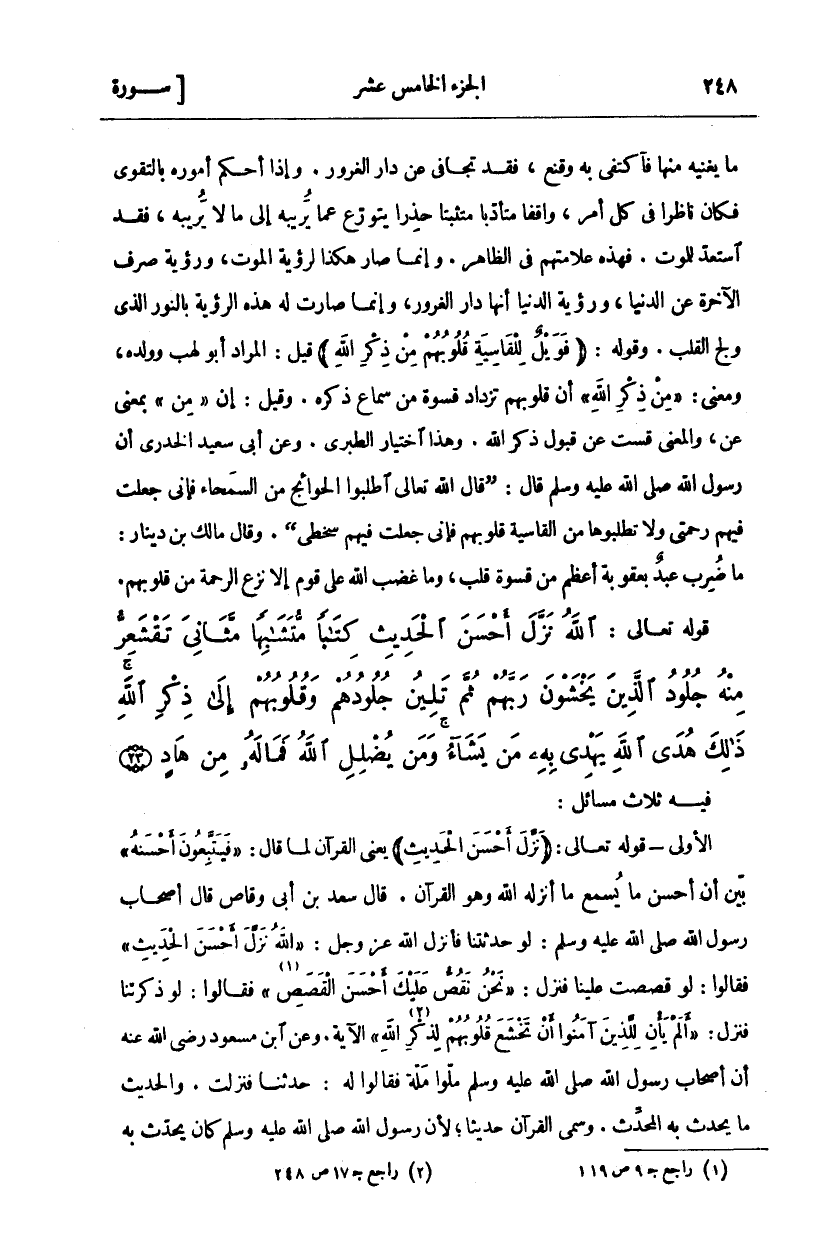 ٢٤٨ الجزء الخامس عشر [ ســورة
ما يغنيه منها فاكتفى به وقنع ، فقــد تجافى عن دار الغرور . وإذا أحكم أموره بالتقوى
فكان ناظرا فى كل أمر ، واقفا متأدّبا متثبتا حذِرا يتورّع عما يَُريبه إلى ما لا يَُريبه ، فقــد
ٱستعدّ للموت . فهذه علامتهم فى الظاهر . وإنمــا صار هكذا لرؤية الموت، ورؤية صرف
الآخرة عن الدنيا ، ورؤية الدنيا أنها دار الغرور، وإنمــا صارت له هذه الرؤية بالنور الذى
ولج القلب . وقوله : ﴿ فَوَيْلٌ لِلْقَاسِيَةِ قُلُوبُهُمْ مِنْ ذِكْرِ اللَّهِ ﴾ قيل : المراد أبو لهب وولده،
ومعنى: «مِنْ ذِكْرِ اللَّهِ» أن قلوبهم تزداد قسوة من سماع ذكره . وقيل : إن « مِن » بمعنى
عن، والمعنى قست عن قبول ذكر الله . وهذا ٱختيار الطبرى . وعن أبى سعيد الخدرى أن
رسول الله صلى الله عليه وسلم قال : ”قال الله تعالى ٱطلبوا الحوائج من السمَحاء فإنى جعلت
فيهم رحمتى ولا تطلبوها من القاسية قلوبهم فإنى جعلت فيهم سخطى“ . وقال مالك بن دينار :
ما ضُرِب عبدٌ بعقوبة أعظم من قسوة قلب، وما غضب الله على قوم إلا نزع الرحمة من قلوبهم.
قوله تعــالى : ٱللَّهُ نَزَّلَ أَحْسَنَ ٱلْحَدِيثِ كِتَٰبًا مُّتَشَٰبِهًا مَّثَانِىَ تَقْشَعِرُّ
مِنْهُ جُلُودُ ٱلَّذِينَ يَخْشَوْنَ رَبَّهُمْ ثُمَّ تَلِينُ جُلُودُهُمْ وَقُلُوبُهُمْ إِلَىٰ ذِكْرِ ٱللَّهِ ۚ
ذَٰلِكَ هُدَى ٱللَّهِ يَهْدِى بِهِۦ مَن يَشَآءُ ۚ وَمَن يُضْلِلِ ٱللَّهُ فَمَا لَهُۥ مِنْ هَادٍ ﴿٢٣﴾
فيــه ثلاث مسائل :
الأولى — قوله تعــالى: ﴿نَزَّلَ أَحْسَنَ الْحَدِيثِ﴾ يعنى القرآن لمــا قال: «فَيَتَّبِعُونَ أَحْسَنَهُ»
بيّن أن أحسن ما يُسمع ما أنزله الله وهو القرآن . قال سعد بن أبى وقاص قال أصحاب
رسول الله صلى الله عليه وسلم : لو حدثتنا فأنزل الله عز وجل : «اللَّهُ نَزَّلَ أَحْسَنَ الْحَدِيثِ»
فقالوا : لو قصصت علينا فنزل : «نَحْنُ نَقُصُّ عَلَيْكَ أَحْسَنَ الْقَصَصِ (١)» فقــالوا : لو ذكرتنا
فنزل: «أَلَمْ يَأْنِ لِلَّذِينَ آمَنُوا أَنْ تَخْشَعَ قُلُوبُهُمْ لِذِكْرِ اللَّهِ (٢)» الآية. وعن ٱبن مسعود رضى الله عنه
أن أصحاب رسول الله صلى الله عليه وسلم ملّوا مَلّة فقالوا له : حدثنــا فنزلت . والحديث
ما يحدث به المحدِّث . وسمى القرآن حديثا؛ لأن رسول الله صلى الله عليه وسلم كان يحدّث به
(١) راجع جـ ٩ ص ١١٩ (٢) راجع جـ ١٧ ص ٢٤٨